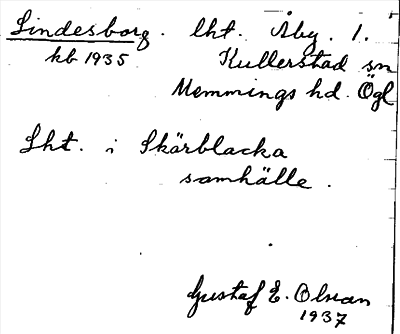 Lindesborg. lht. Åby. 1.
kb 1935. Kullerstad sn
Memmings hd. Ögl
Lht. i Skärblacka
samhälle.
Gustaf E. Olsson
1937